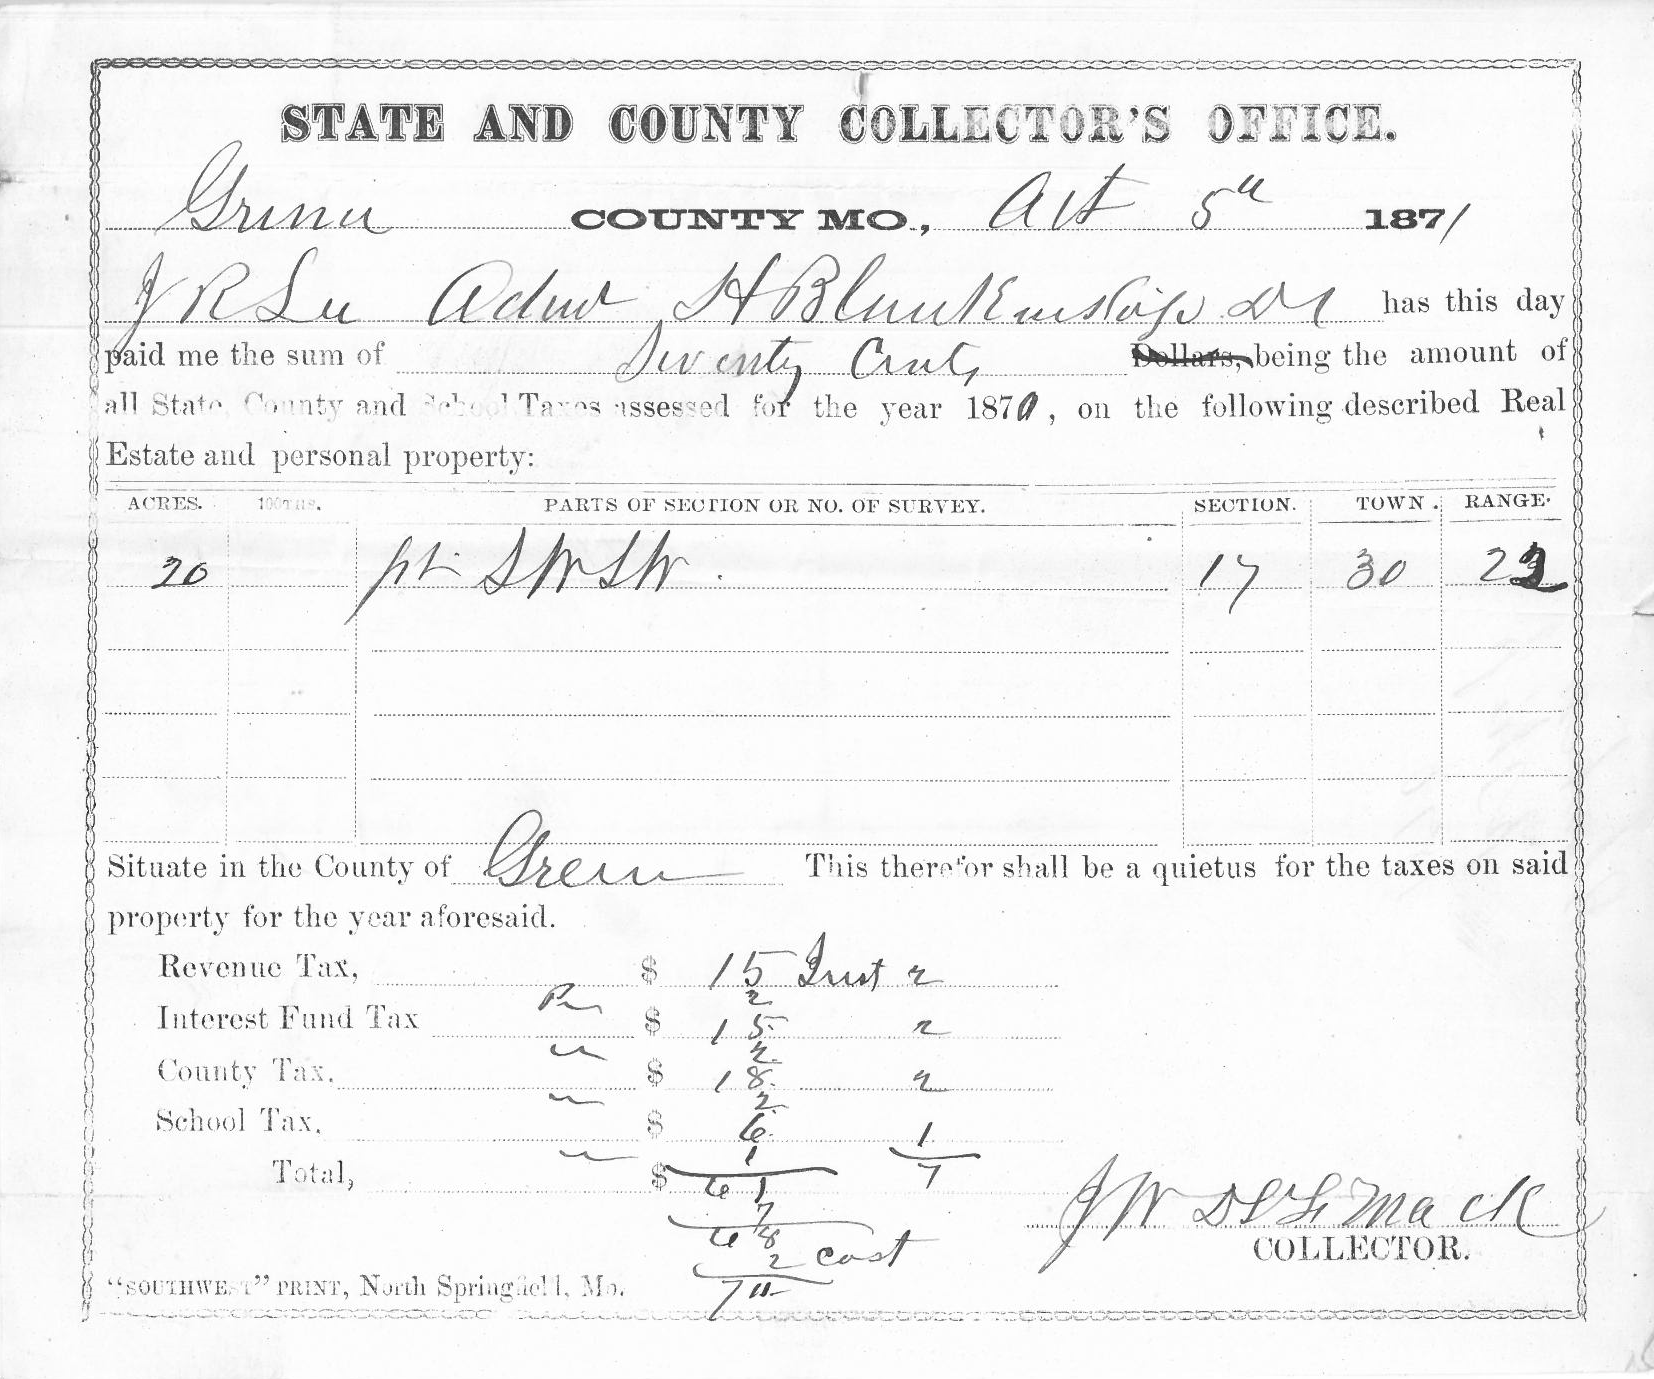 STATE AND COUNTY COLLECTOR'S OFFICE.
Greene COUNTY MO., Oct 5th 1871
J R Lee Admr H Blankenship Dd has this day
paid me the sum of Seventy Cents Dollars, being the amount of
all State, County and School Taxes assessed for the year 1870, on the following described Real
Estate and personal property:
ACRES. 100THS. PARTS OF SECTION OR NO. OF SURVEY. SECTION. TOWN. RANGE.
20 pt SW SW. 17 30 22
Situate in the County of Greene This therefor shall be a quietus for the taxes on said
property for the year aforesaid.
Revenue Tax, $ 15 Inst 2
2
Interest Fund Tax $ 15 2
2
County Tax. $ 18 2
2
School Tax. $ 6 1
1
Total, $ 61 7
7
68
2 cost
70
J W D McMack
COLLECTOR.
"SOUTHWEST" PRINT, North Springfield, Mo.